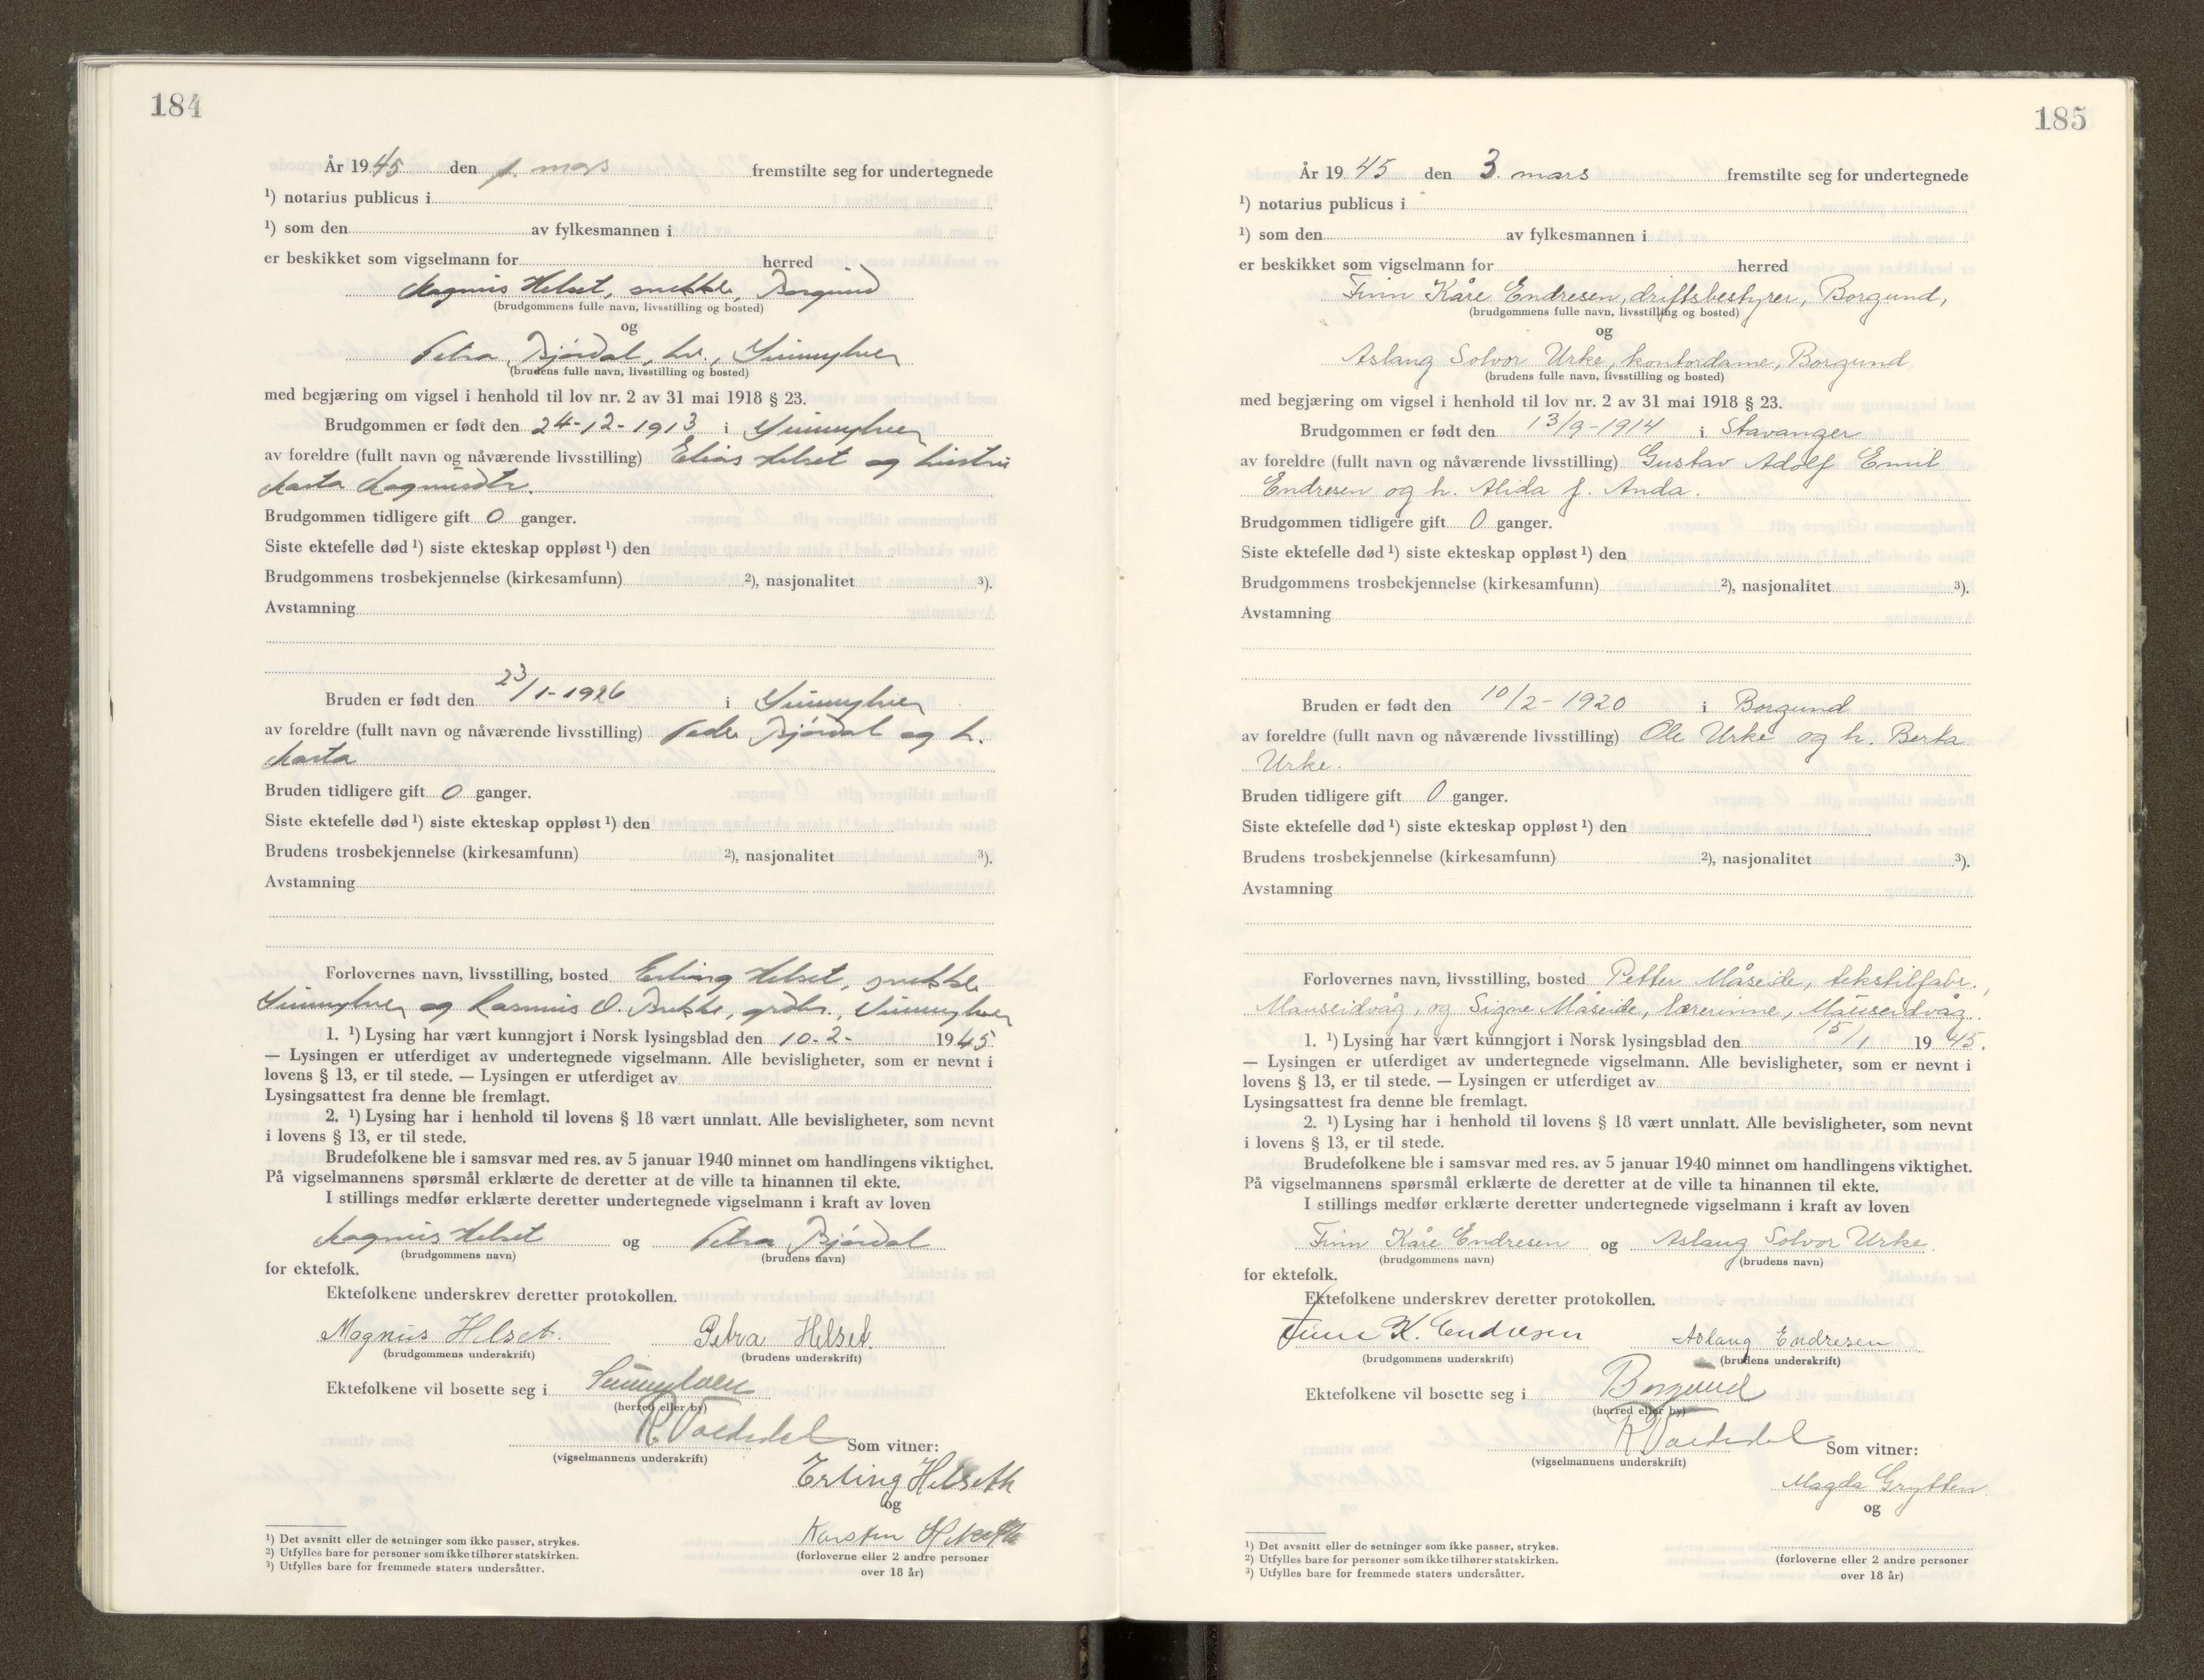 184
År 1945 den 1. mars fremstilte seg for undertegnede
¹) notarius publicus i
¹) som den av fylkesmannen i
er beskikket som vigselmann for herred
Magnus Helset, snekker, Borgund
(brudgommens fulle navn, livsstilling og bosted)
og
Petra Bjørdal, hv., Sunnylven
(brudens fulle navn, livsstilling og bosted)
med begjæring om vigsel i henhold til lov nr. 2 av 31 mai 1918 § 23.
Brudgommen er født den 24-12-1913 i Sunnylven
av foreldre (fullt navn og nåværende livsstilling) Elias Helset og hustru
Marta Magnusdtr.
Brudgommen tidligere gift 0 ganger.
Siste ektefelle død ¹) siste ekteskap oppløst ¹) den
Brudgommens trosbekjennelse (kirkesamfunn) ²), nasjonalitet ³).
Avstamning
Bruden er født den 23/1-1926 i Sunnylven
av foreldre (fullt navn og nåværende livsstilling) Peder Bjørdal og h.
Marta
Bruden tidligere gift 0 ganger.
Siste ektefelle død ¹) siste ekteskap oppløst ¹) den
Brudens trosbekjennelse (kirkesamfunn) ²), nasjonalitet ³).
Avstamning
Forlovernes navn, livsstilling, bosted Erling Helset, snekker
Sunnylven og Rasmus O. grdbr., Sunnylven
1. ¹) Lysing har vært kunngjort i Norsk lysingsblad den 10-2- 1945
— Lysingen er utferdiget av undertegnede vigselmann. Alle bevisligheter, som er nevnt i
lovens § 13, er til stede. — Lysingen er utferdiget av
Lysingsattest fra denne ble fremlagt.
2. ¹) Lysing har i henhold til lovens § 18 vært unnlatt. Alle bevisligheter, som nevnt
i lovens § 13, er til stede.
Brudefolkene ble i samsvar med res. av 5 januar 1940 minnet om handlingens viktighet.
På vigselmannens spørsmål erklærte de deretter at de ville ta hinannen til ekte.
I stillings medfør erklærte deretter undertegnede vigselmann i kraft av loven
Magnus Helset og Petra Bjørdal
(brudgommens navn) (brudens navn)
for ektefolk.
Ektefolkene underskrev deretter protokollen.
Magnus Helset. Petra Helset.
(brudgommens underskrift) (brudens underskrift)
Ektefolkene vil bosette seg i Sunnylven
(herred eller by)
(vigselmannens underskrift) Som vitner:
Erling Helseth
og
Karsten Helseth
(forloverne eller 2 andre personer
over 18 år)
¹) Det avsnitt eller de setninger som ikke passer, strykes.
²) Utfylles bare for personer som ikke tilhører statskirken.
³) Utfylles bare for fremmede staters undersåtter.
185
År 1945 den 3. mars fremstilte seg for undertegnede
¹) notarius publicus i
¹) som den av fylkesmannen i
er beskikket som vigselmann for herred
Finn Kåre Endresen, driftsbestyrer, Borgund,
(brudgommens fulle navn, livsstilling og bosted)
og
Aslaug Solvor Urke, kontordame, Borgund
(brudens fulle navn, livsstilling og bosted)
med begjæring om vigsel i henhold til lov nr. 2 av 31 mai 1918 § 23.
Brudgommen er født den 13/9-1914 i Stavanger
av foreldre (fullt navn og nåværende livsstilling) Gustav Adolf Emil
Endresen og h. Alida f. Anda.
Brudgommen tidligere gift 0 ganger.
Siste ektefelle død ¹) siste ekteskap oppløst ¹) den
Brudgommens trosbekjennelse (kirkesamfunn) ²), nasjonalitet ³).
Avstamning
Bruden er født den 10/2-1920 i Borgund
av foreldre (fullt navn og nåværende livsstilling) Ole Urke og h. Berta
Urke.
Bruden tidligere gift 0 ganger.
Siste ektefelle død ¹) siste ekteskap oppløst ¹) den
Brudens trosbekjennelse (kirkesamfunn) ²), nasjonalitet ³).
Avstamning
Forlovernes navn, livsstilling, bosted Petter Måseide, tekstilfabr.,
Mauseidvåg, og Signe Måseide, lærerinne, Mauseidvåg.
1. ¹) Lysing har vært kunngjort i Norsk lysingsblad den 15/1 1945.
— Lysingen er utferdiget av undertegnede vigselmann. Alle bevisligheter, som er nevnt i
lovens § 13, er til stede. — Lysingen er utferdiget av
Lysingsattest fra denne ble fremlagt.
2. ¹) Lysing har i henhold til lovens § 18 vært unnlatt. Alle bevisligheter, som nevnt
i lovens § 13, er til stede.
Brudefolkene ble i samsvar med res. av 5 januar 1940 minnet om handlingens viktighet.
På vigselmannens spørsmål erklærte de deretter at de ville ta hinannen til ekte.
I stillings medfør erklærte deretter undertegnede vigselmann i kraft av loven
Finn Kåre Endresen og Aslaug Solvor Urke.
(brudgommens navn) (brudens navn)
for ektefolk.
Ektefolkene underskrev deretter protokollen.
Finn K. Endresen Aslaug Endresen
(brudgommens underskrift) (brudens underskrift)
Ektefolkene vil bosette seg i Borgund
(herred eller by)
(vigselmannens underskrift) Som vitner:
Magda Grytten.
og
(forloverne eller 2 andre personer
over 18 år)
¹) Det avsnitt eller de setninger som ikke passer, strykes.
²) Utfylles bare for personer som ikke tilhører statskirken.
³) Utfylles bare for fremmede staters undersåtter.